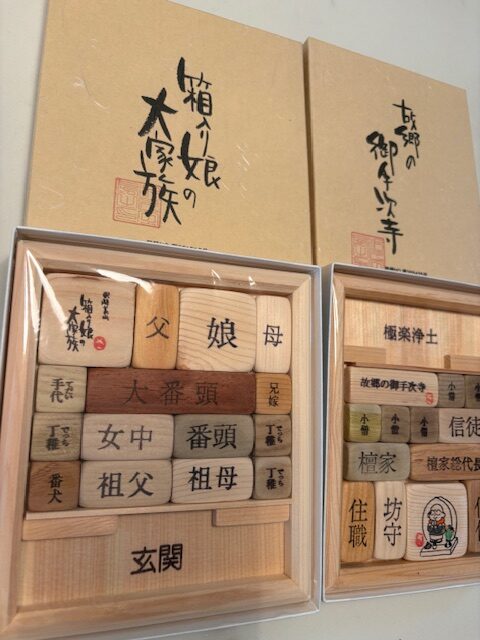 箱入り娘の
大家族
故郷の
御手次寺
箱入り娘の
大家族
父
娘
母
手代
大番頭
兄嫁
丁稚
でっち
女中
番頭
丁稚
でっち
番犬
祖父
祖母
丁稚
でっち
玄関
極楽浄土
故郷の御手次寺
小僧
小僧
小僧
小僧
信徒
檀家
檀家総代長
住職
坊守